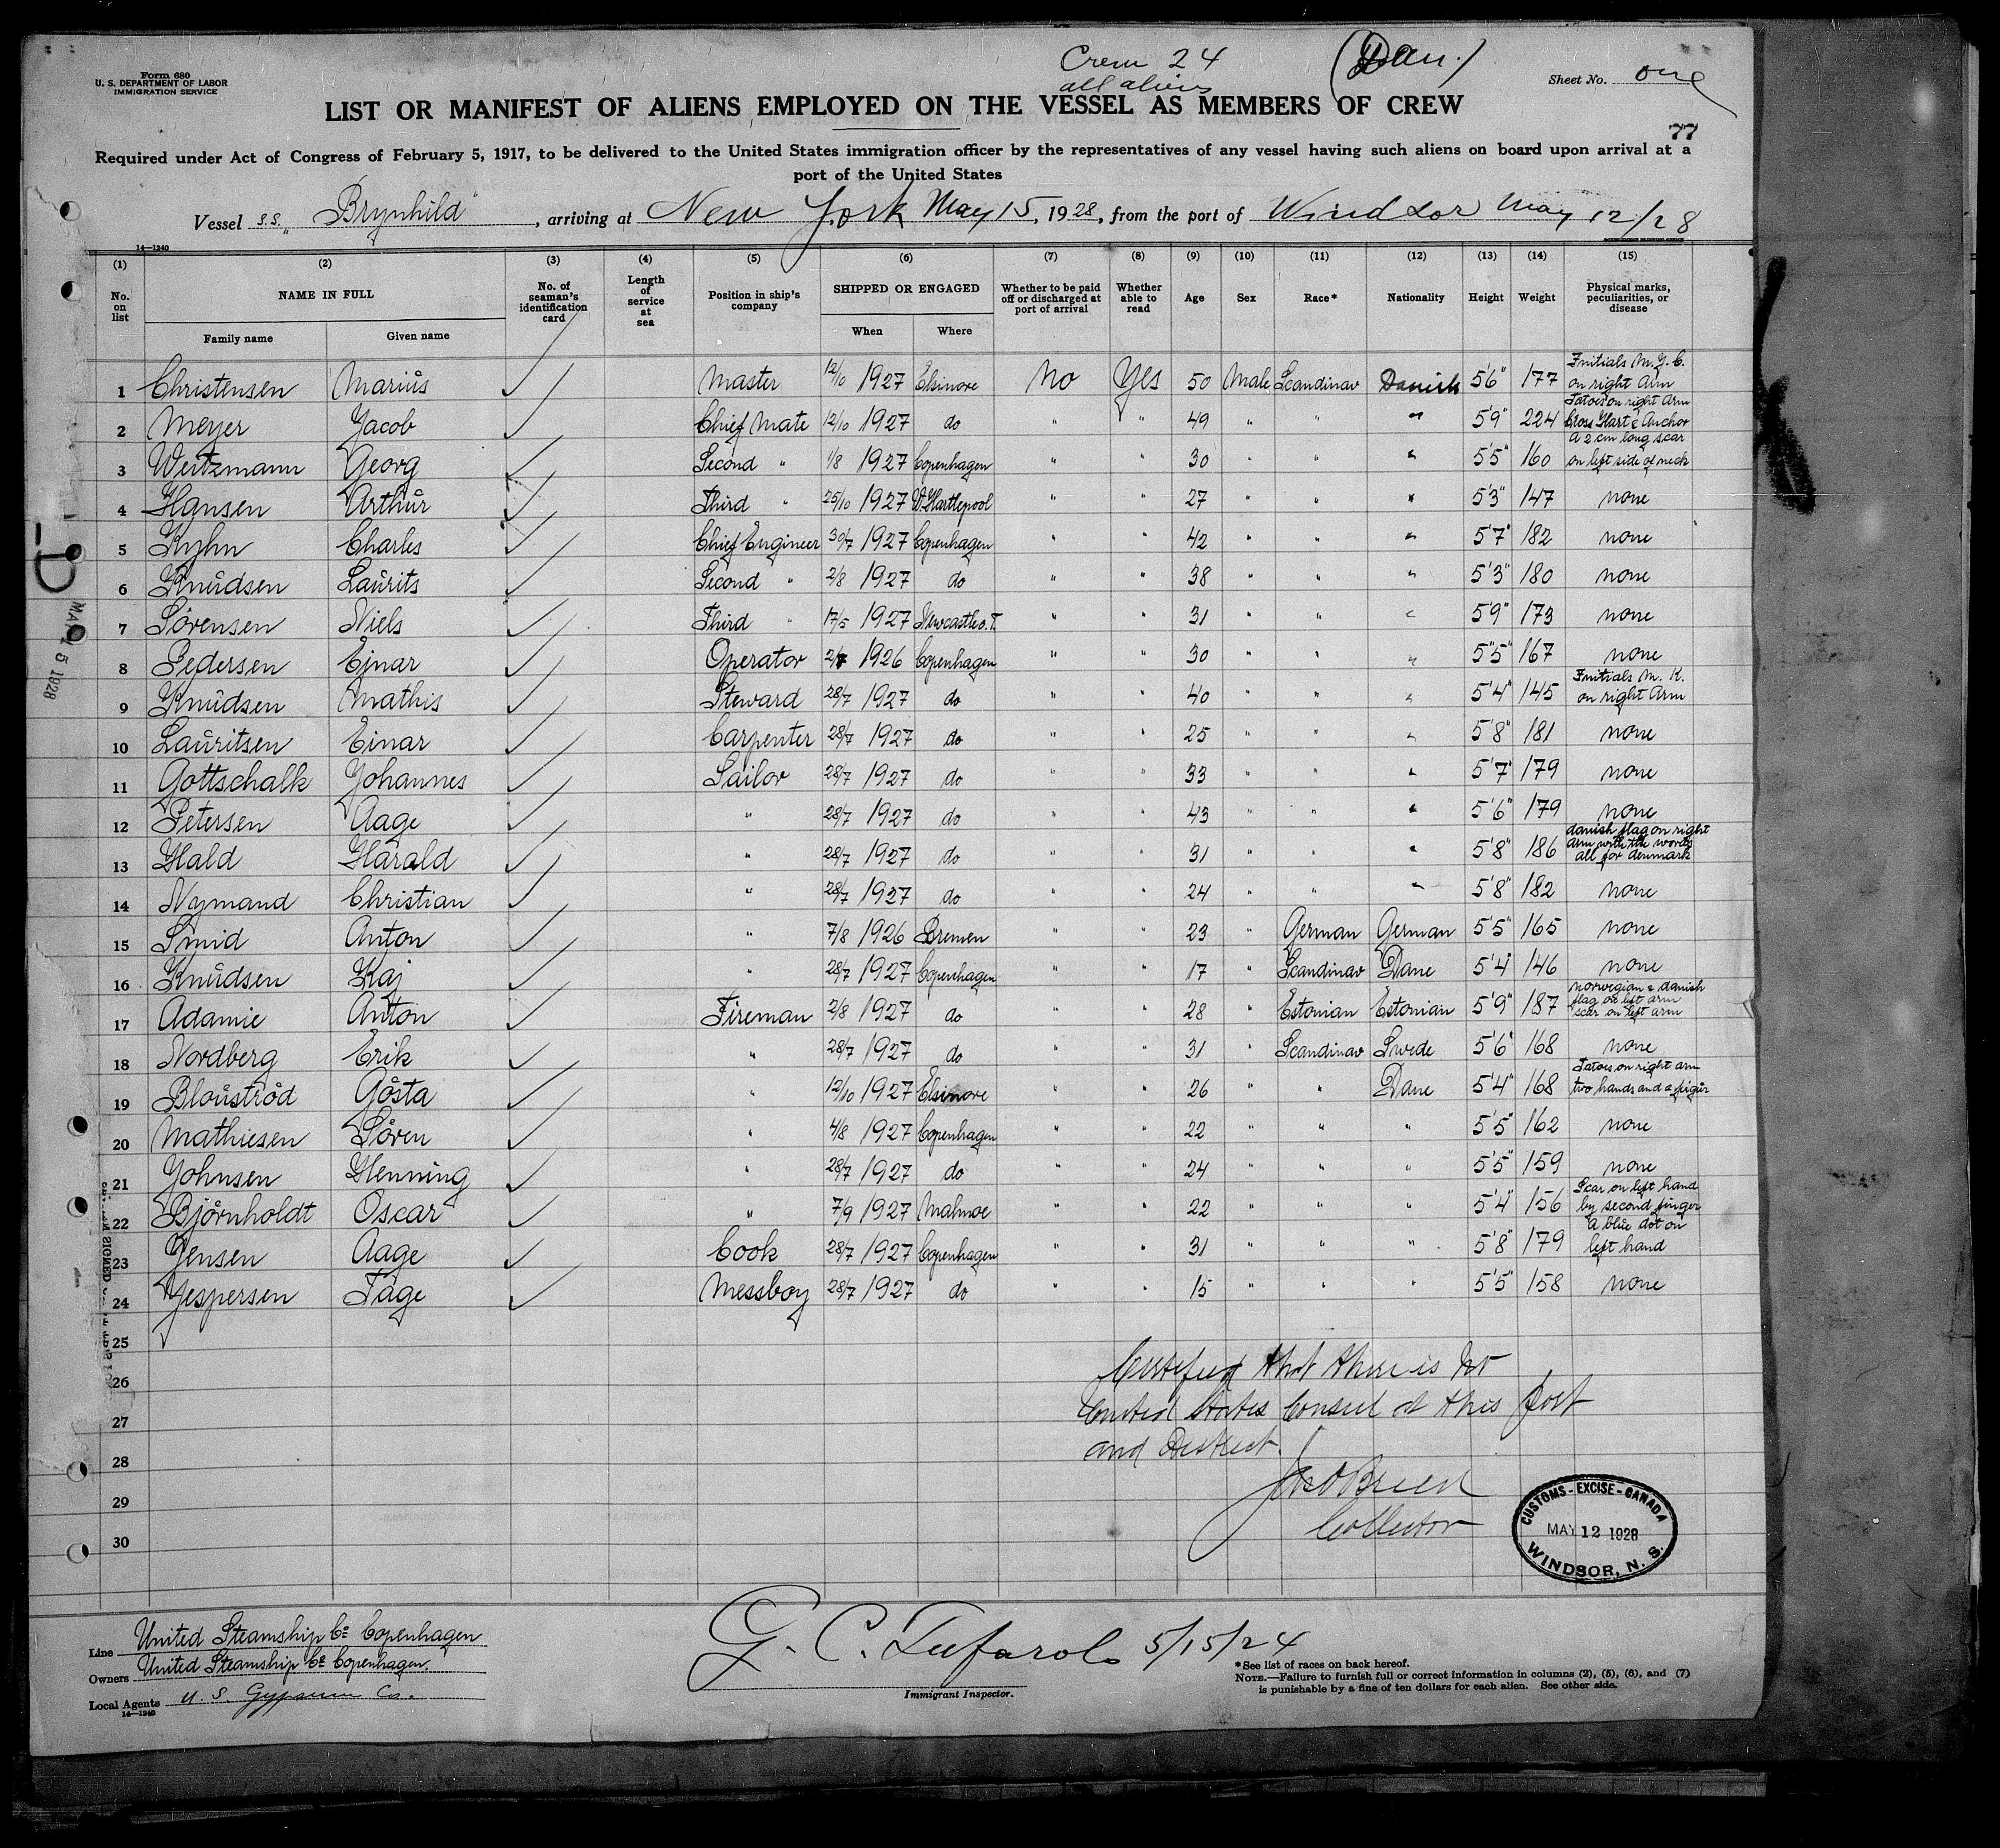 Form 680
U. S. DEPARTMENT OF LABOR
IMMIGRATION SERVICE
Crew 24
all aliens
(Dan.)
Sheet No. one
LIST OR MANIFEST OF ALIENS EMPLOYED ON THE VESSEL AS MEMBERS OF CREW
77
Required under Act of Congress of February 5, 1917, to be delivered to the United States immigration officer by the representatives of any vessel having such aliens on board upon arrival at a
port of the United States
Vessel S.S. "Brynhild", arriving at New York May 15, 1928, from the port of Windsor May 12/28
14—1240
(1) (2) (3) (4) (5) (6) (7) (8) (9) (10) (11) (12) (13) (14) (15)
No. on list NAME IN FULL Family name Given name No. of seaman's identification card Length of service at sea Position in ship's company SHIPPED OR ENGAGED When Where Whether to be paid off or discharged at port of arrival Whether able to read Age Sex Race* Nationality Height Weight Physical marks, peculiarities, or disease
1 Christensen Marius Master 12/10 1927 Elsinore No Yes 50 Male Scandinav Danish 5'6" 177 Initials M. J. C. on right Arm
2 Meyer Jacob Chief Mate 12/10 1927 do " " 49 " " " 5'9" 224 Tatoes on right Arm Cross Hart & Anchor
3 Weitzmann Georg Second " 1/8 1927 Copenhagen " " 30 " " " 5'5" 160 A 2 cm long scar on left side of neck
4 Hansen Arthur Third " 25/10 1927 W. Hartlepool " " 27 " " " 5'3" 147 none
5 Kyhn Charles Chief Engineer 30/7 1927 Copenhagen " " 42 " " " 5'7" 182 none
6 Knudsen Laurits Second " 2/8 1927 do " " 38 " " " 5'3" 180 none
7 Sörensen Niels Third " 17/5 1927 Newcastle o. T. " " 31 " " " 5'9" 173 none
8 Pedersen Ejnar Operator 2/7 1926 Copenhagen " " 30 " " " 5'5" 167 none
9 Knudsen Mathis Steward 28/7 1927 do " " 40 " " " 5'4" 145 Initials M. K. on right Arm
10 Lauritsen Einar Carpenter 28/7 1927 do " " 25 " " " 5'8" 181 none
11 Gottschalk Johannes Sailor 28/7 1927 do " " 33 " " " 5'7" 179 none
12 Petersen Aage " 28/7 1927 do " " 43 " " " 5'6" 179 none
13 Hald Harald " 28/7 1927 do " " 31 " " " 5'8" 186 danish flag on right Arm with the words all for denmark
14 Nymand Christian " 28/7 1927 do " " 24 " " " 5'8" 182 none
15 Smid Anton " 7/8 1926 Bremen " " 23 " German German 5'5" 165 none
16 Knudsen Kaj " 28/7 1927 Copenhagen " " 17 " Scandinav Dane 5'4" 146 none
17 Adamie Anton Fireman 2/8 1927 do " " 28 " Estonian Estonian 5'9" 187 norwegian & danish flag on left arm scar on left arm
18 Nordberg Erik " 28/7 1927 do " " 31 " Scandinav Swede 5'6" 168 none
19 Gösta " 12/10 1927 Elsinore " " 26 " " Dane 5'4" 168 Tatoes on right arm two hands and a figur
20 Mathiesen Sören " 4/8 1927 Copenhagen " " 22 " " " 5'5" 162 none
21 Johnsen Henning " 28/7 1927 do " " 24 " " " 5'5" 159 none
22 Björnholdt Oscar " 7/9 1927 Malmoe " " 22 " " " 5'4" 156 Scar on left hand by second finger
23 Jensen Aage Cook 28/7 1927 Copenhagen " " 31 " " " 5'8" 179 A blue dot on left hand
24 Jespersen Tage Messboy 28/7 1927 do " " 15 " " " 5'5" 158 none
25
26
27
28
29
30
Certified that there is no
United States Consul at this port
and District.
Jas O'Brien
Collector
CUSTOMS - EXCISE - CANADA
MAY 12 1928
WINDSOR, N. S.
Line United Steamship Co Copenhagen
Owners United Steamship Co Copenhagen.
Local Agents U. S. Gypsum Co.
14—1240
G. C. Tufarolo 5/15/24
Immigrant Inspector.
*See list of races on back hereof.
NOTE.—Failure to furnish full or correct information in columns (2), (5), (6), and (7)
is punishable by a fine of ten dollars for each alien. See other side.
MAY 15 1928